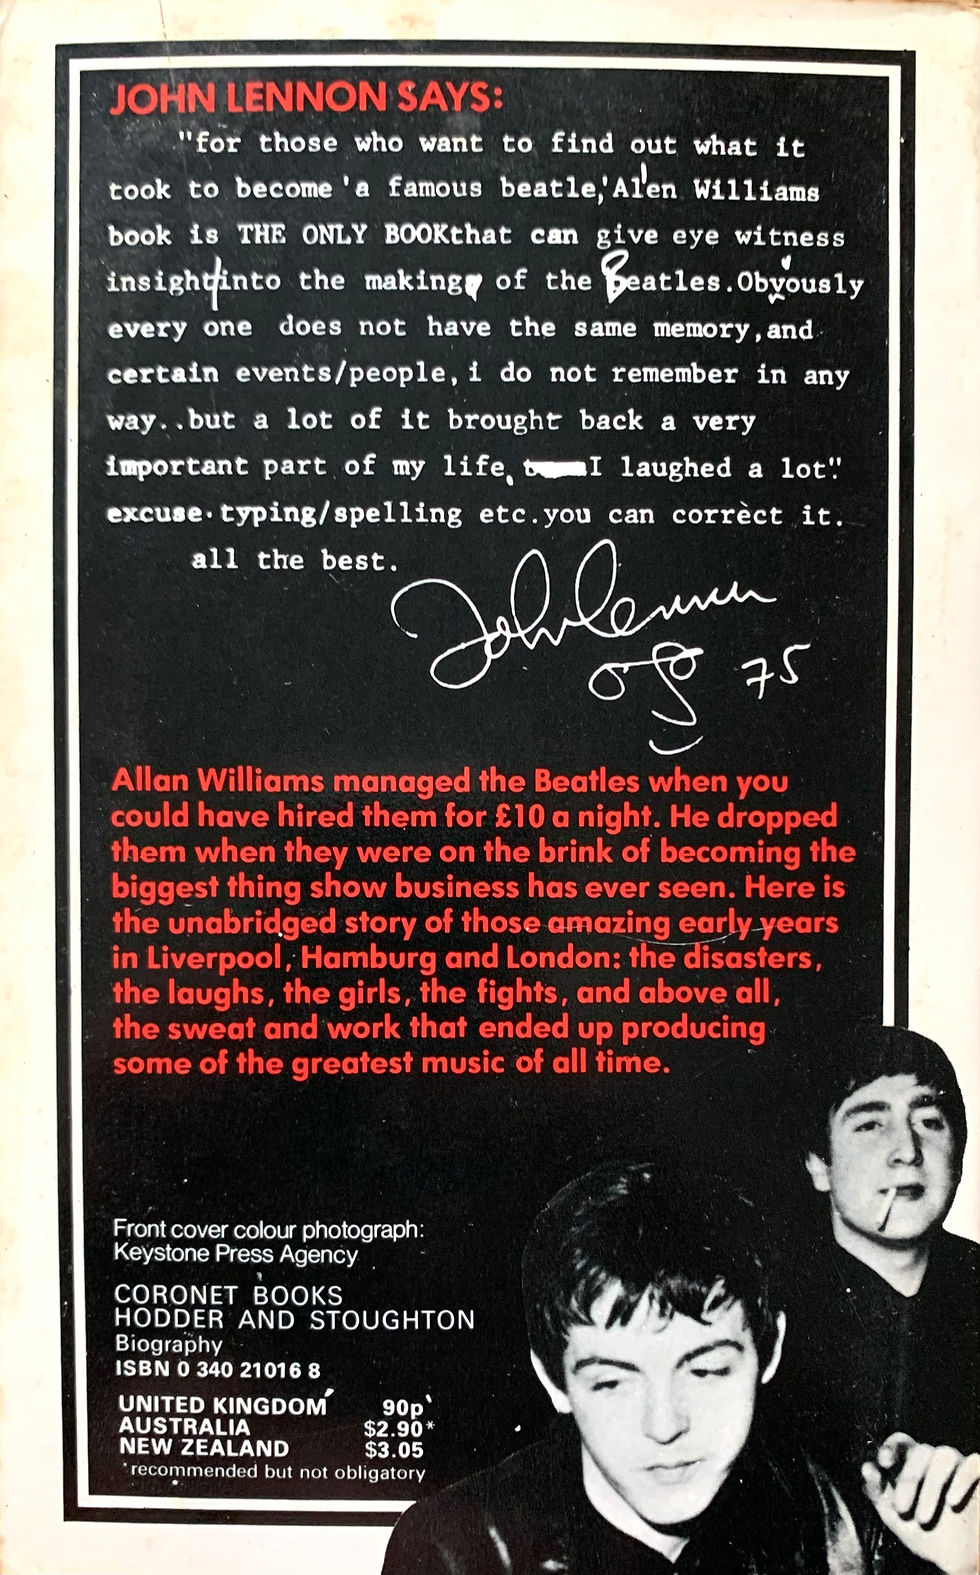 JOHN LENNON SAYS:
"for those who want to find out what it
took to become 'a famous beatle,'Alen Williams
book is THE ONLY BOOKthat can give eye witness
insight/into the making of the Beatles.Obviously
every one does not have the same memory,and
certain events/people,i do not remember in any
way..but a lot of it brought back a very
important part of my life, I laughed a lot"!
excuse typing/spelling etc.you can correct it.
all the best.
John Lennon
75
Allan Williams managed the Beatles when you
could have hired them for £10 a night. He dropped
them when they were on the brink of becoming the
biggest thing show business has ever seen. Here is
the unabridged story of those amazing early years
in Liverpool, Hamburg and London: the disasters,
the laughs, the girls, the fights, and above all,
the sweat and work that ended up producing
some of the greatest music of all time.
Front cover colour photograph:
Keystone Press Agency
CORONET BOOKS
HODDER AND STOUGHTON
Biography
ISBN 0 340 21016 8
UNITED KINGDOM 90p
AUSTRALIA $2.90*
NEW ZEALAND $3.05
*recommended but not obligatory